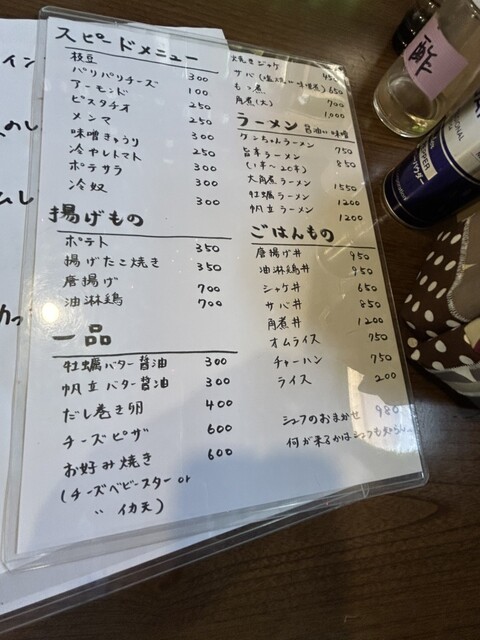 スピードメニュー
枝豆 300
パリパリチーズ 100
アーモンド 250
ピスタチオ 250
メンマ 300
味噌きゅうり 250
冷やしトマト 300
ポテサラ 300
冷奴 300
揚げもの
ポテト 350
揚げたこ焼き 350
唐揚げ 700
油淋鶏 700
一品
牡蠣バター醤油 300
帆立バター醤油 300
だし巻き卵 400
チーズピザ 600
お好み焼き 600
(チーズベビースター or
〃 イカ天)
焼きジャケ 450
サバ(塩焼 or 味噌煮) 650
もつ煮 700
角煮(大) 1,000
ラーメン 醤油 or 味噌
ケンちゃんラーメン 750
旨辛ラーメン 850
(1辛~20辛)
大角煮ラーメン 1550
牡蠣ラーメン 1200
帆立ラーメン 1200
ごはんもの
唐揚げ丼 950
油淋鶏丼 950
シャケ丼 650
サバ丼 850
角煮丼 1200
オムライス 750
チャーハン 750
ライス 200
シェフのおまかせ 980
何が来るかはシェフも
酢